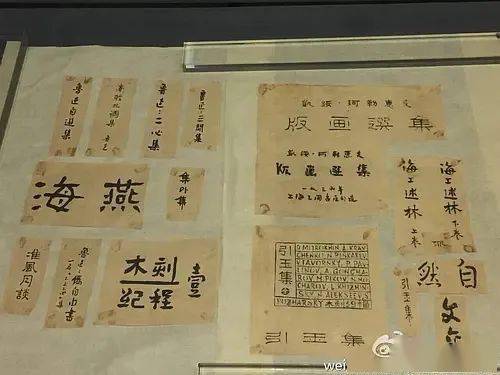 魯迅自選集
魯迅：二心集
魯迅：三閒集
海燕
集外集
准風月談
魯迅：偽自由書
木刻
紀程
壹
凱綏·珂勒惠支
版画選集
凱綏·珂勒惠支
版画選集
一九三六年
上海三閒書屋印造
海上述林 上卷
海上述林 下卷
引玉集
D.MITROKHIN A.KRAV
CHENKO N.PISKAREV
V.FAVORSKY P.PAV
LINOV A.GONCHA
ROV M.PIKOV S.MO
CHAROV L.KHIZHIN
SKY N.ALEKSEEV S
引玉集
引玉集
自然
wei